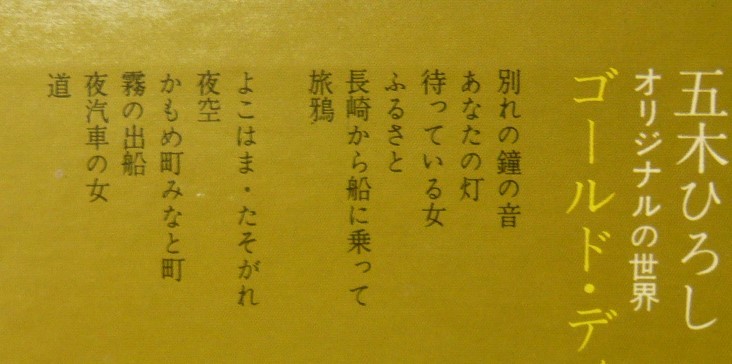 五木ひろし
オリジナルの世界
ゴールド・デ
別れの鐘の音
あなたの灯
待っている女
ふるさと
長崎から船に乗って
旅鴉
よこはま・たそがれ
夜空
かもめ町みなと町
霧の出船
夜汽車の女
道